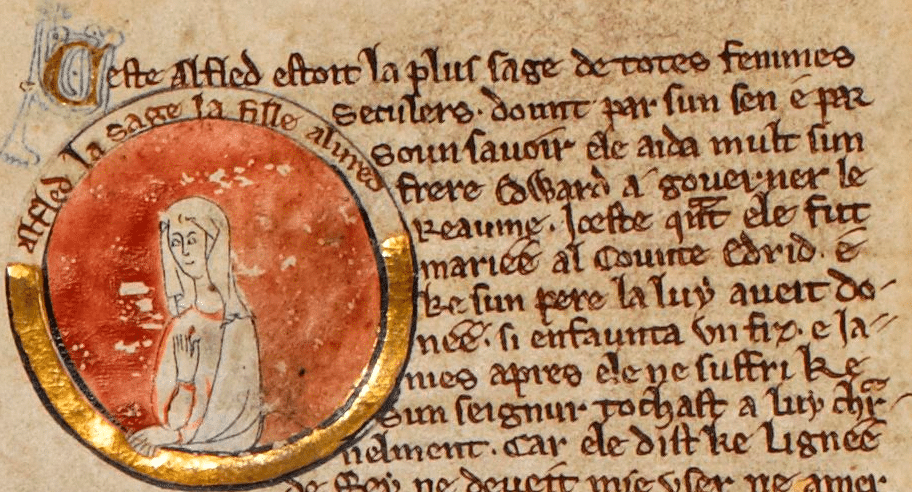 Ceste Alfled estoit la plus sage de totes femmes
alfled la sage la fille alured
seculers. dount par sun sen e par
soun sauoir ele aida mult sun
frere Edward a gouerner le
reaume. Iceste qnt ele fut
mariee al Counte Edrid. e
ke sun pere la luy aueit do-
nee. si enfaunta vn fiz. e Ja-
mes apres ele ne suffri ke
sun seignur tochast a luy chr-
nelment. Car ele dist ke Lignee
de Rey ne deueit mie vser ne amer